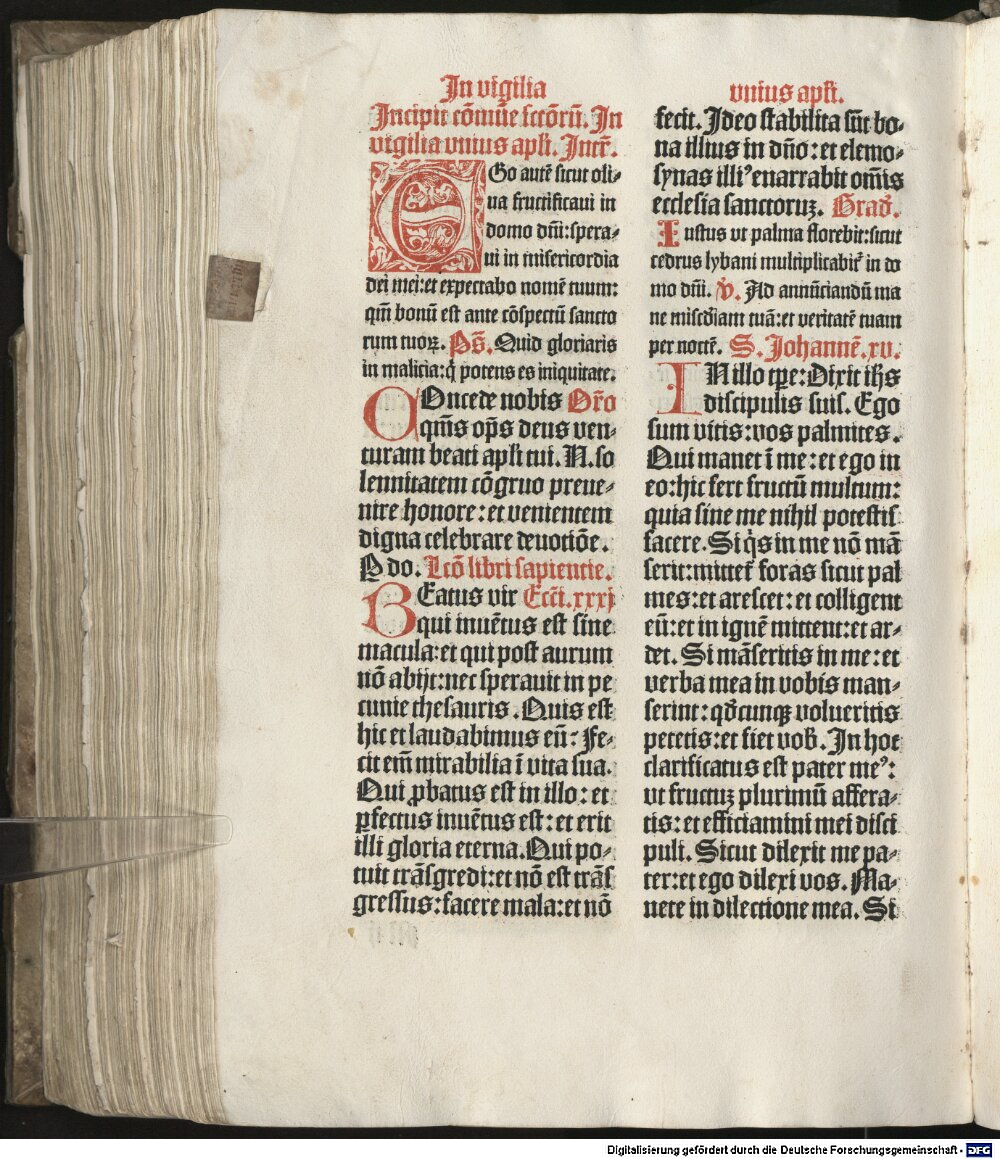 In vigilia
Incipit cōmūe sctōrū. In
vigilia vnius apłi. Intr̄.
EGo autē sicut oli⸗
ua fructificaui in
domo dn̄i:spera⸗
ui in misericordia
dei mei:et expectabo nomē tuum:
qm̄ bonū est ante cōspectū sancto
rum tuoꝝ. Ps̄. Quid gloriaris
in malicia:q̇ potens es iniquitate.
COncede nobis Or̄o
qm̄s op̄s deus ven⸗
turam beati apłi tui. N. so
lennitatem cōgruo preue⸗
nire honore:et venientem
digna celebrare deuotiōe.
P do. Lcō libri sapientie.
BEatus vir Ecci̅.xxxj
qui inuētus est sine
macula:et qui post aurum
nō abijt:nec sperauit in pe
cunie thesauris. Quis est
hic et laudabimus eū: Fe⸗
cit em̄ mirabilia ī vita sua.
Qui ꝓbatus est in illo: et
ꝑfectus inuētus est:et erit
illi gloria eterna. Qui po⸗
tuit trāsgredi:et nō est trās
gressus:facere mala:et nō
vnius apłi.
fecit. Ideo stabilita sūt bo⸗
na illius in dn̄o:et elemo⸗
synas illiꝰ enarrabit om̄is
ecclesia sanctoruꝫ. Grad̄.
Iustus vt palma florebit:sicut
cedrus lybani multiplicabit᷑ in do
mo dn̄i. ℣. Ad annūciandū ma
ne mis̄cdiam tuā:et veritatē tuam
per noctē. S. Johannē.xv.
IN illo tp̄e:Dixit ihs̄
discipulis suis. Ego
sum vitis:vos palmites.
Qui manet ī me:et ego in
eo:hic fert fructū multum:
quia sine me nihil potestis
facere. Si q̇s in me nō mā
serit:mittet᷑ foras sicut pal
mes:et arescet:et colligent
eū:et in ignē mittent:et ar⸗
det. Si māseritis in me:et
verba mea in vobis man⸗
serint:qd̄cunqꝫ volueritis
petetis:et fiet vob̄. In hoc
clarificatus est pater meꝰ:
vt fructuꝫ plurimū affera⸗
tis:et efficiamini mei disci
puli. Sicut dilexit me pa⸗
ter:et ego dilexi vos. Ma⸗
nete in dilectione mea. Si
Digitalisierung gefördert durch die Deutsche Forschungsgemeinschaft - DFG